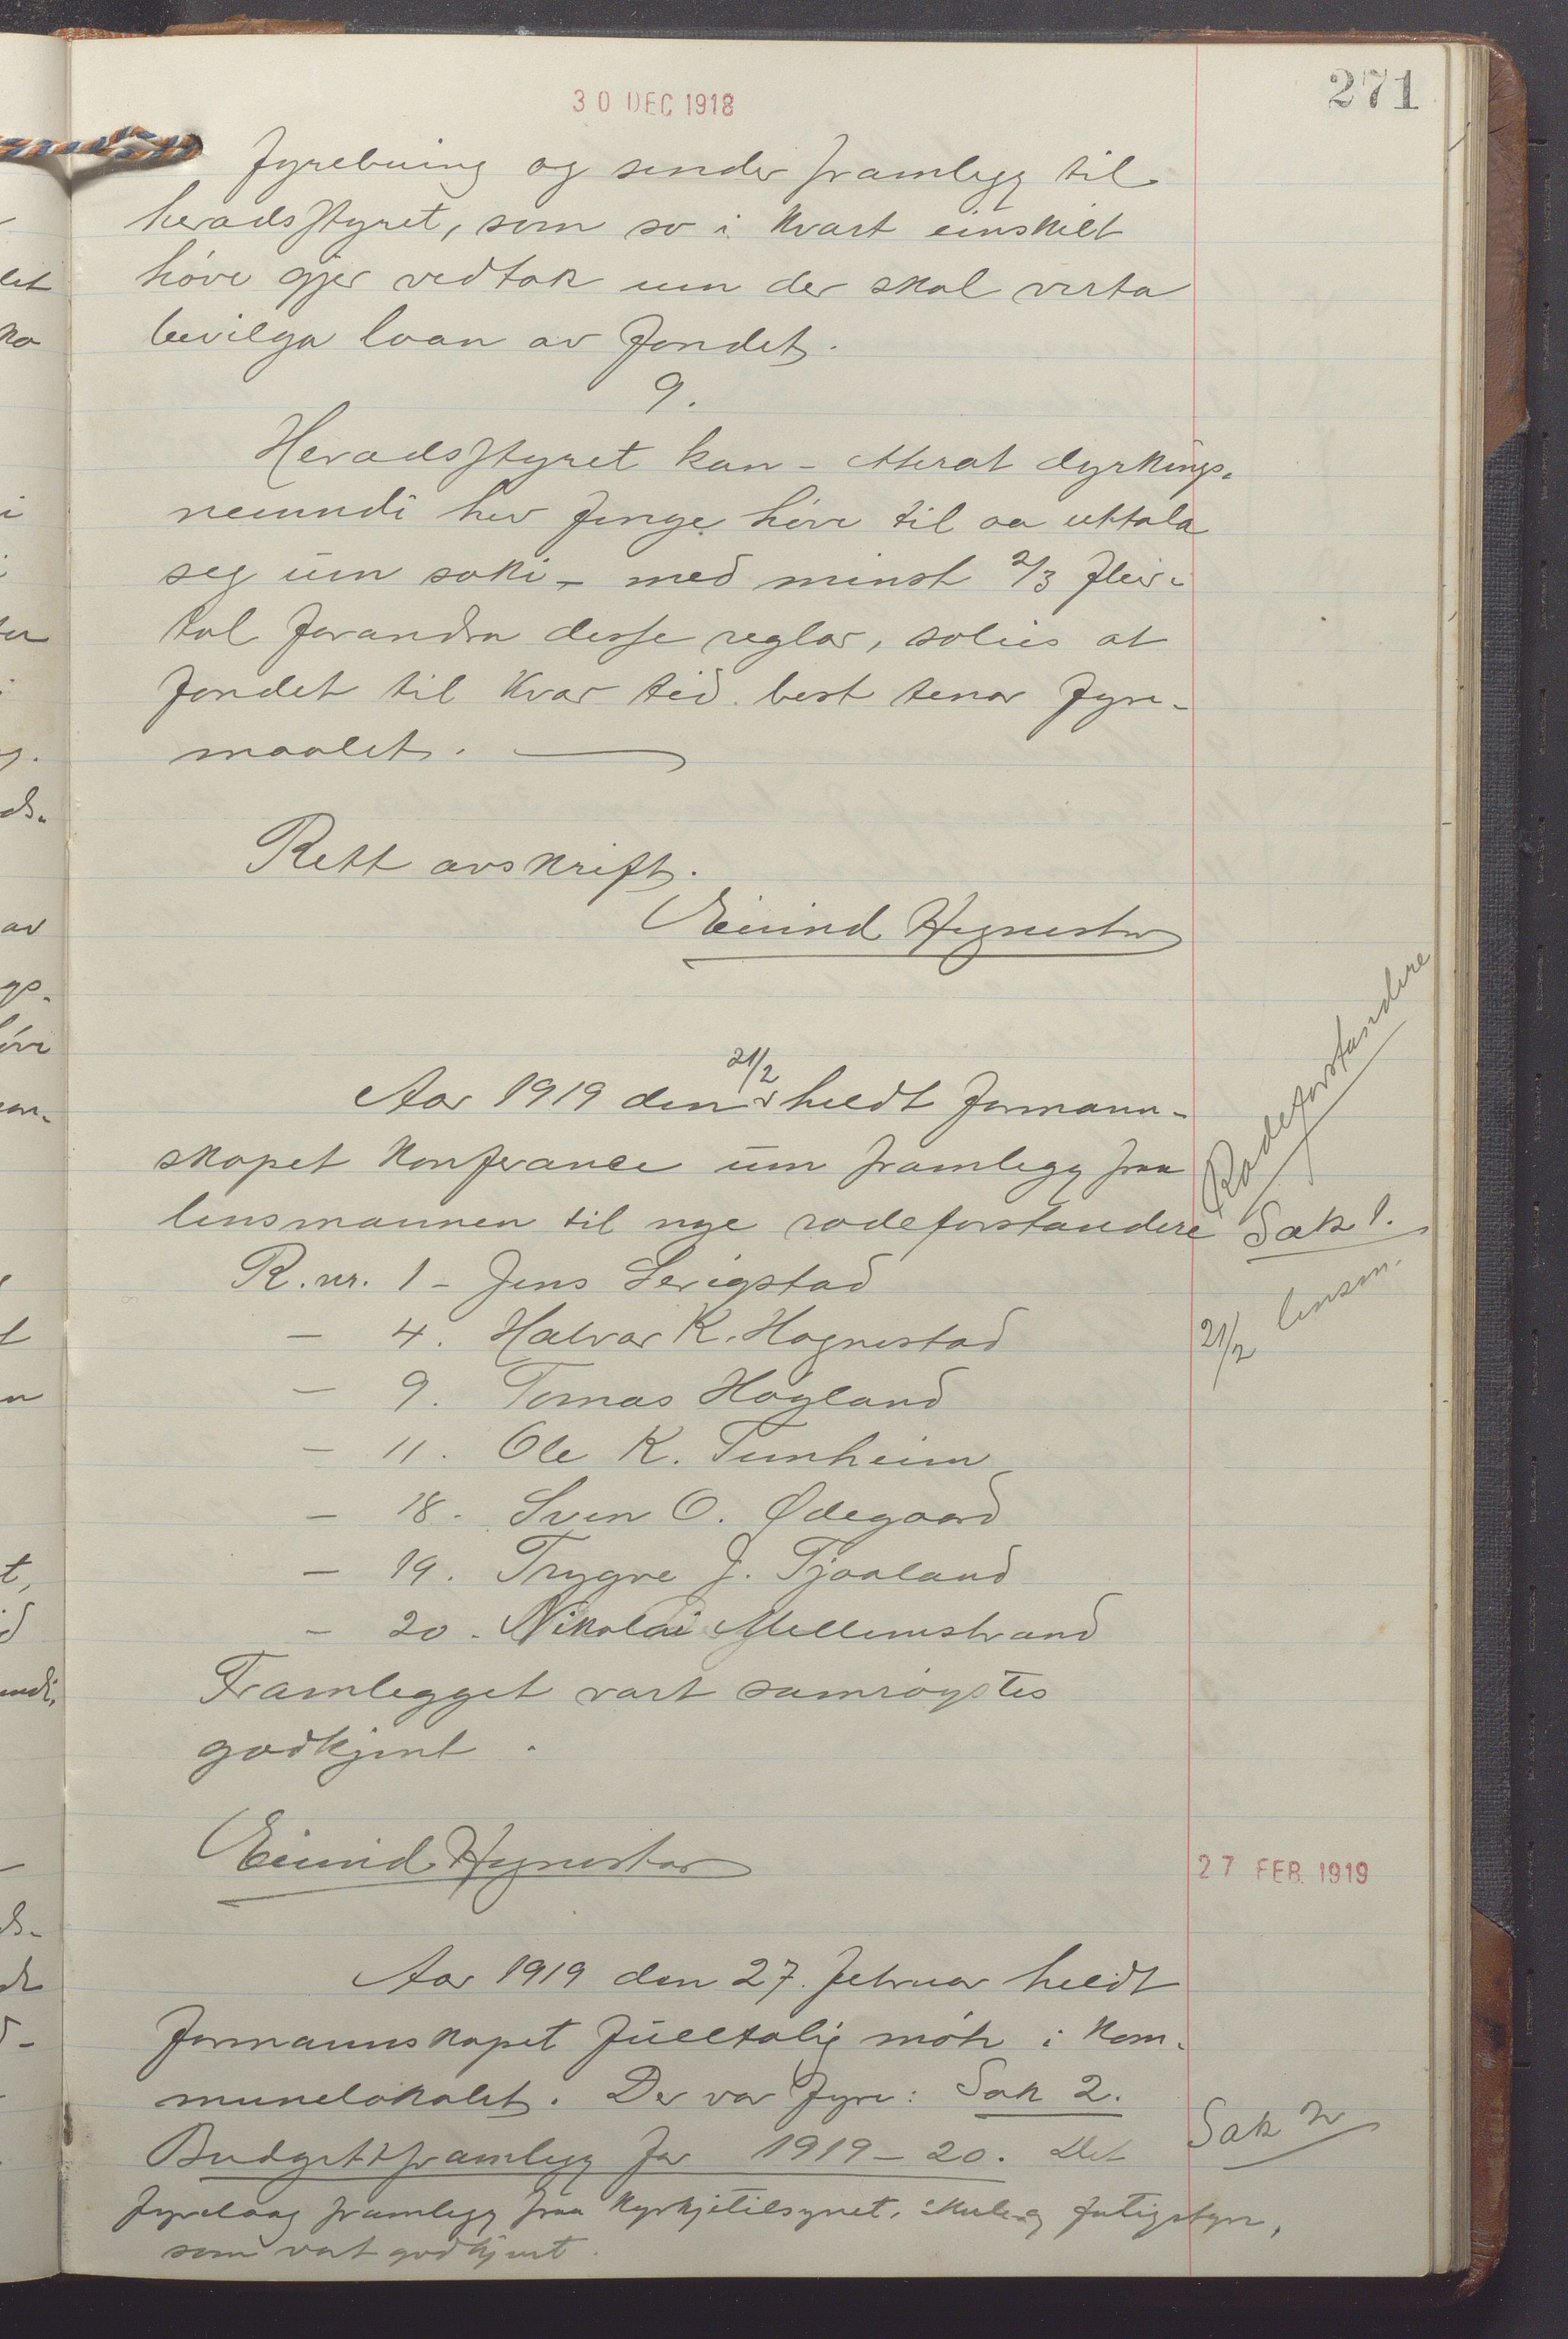 271
30 DEC 1918
fyrebuing og sender framlegg til
heradsstyret, som so i kvart einskilt
høve gjer vedtak um der skal verta
bevilga laan av fondet.
9.
Heradsstyret kan - etterat dyrkings-
nemndi hev fenge høve til aa uttala
seg um saki - med minst 2/3 fleir-
tal forandra desse reglar, soleis at
fondet til kvar tid best tenar fyre-
maalet.
Rett avskrift.
Eivind Hognestad
Aar 1919 den 21/2 heldt formann-
skapet konferance um framlegg fraa
lensmannen til nye rodeforstandere
Rodeforstandere
Sak 1.
21/2 lensm.
R. nr. 1 - Jens Serigstad
- 4. Halvar K. Hognestad
- 9. Tomas Høyland
- 11. Ole K. Tunheim
- 18. Sven O. Ødegaard
- 19. Trygve J. Tjaaland
- 20. Nikolai Mellemstrand
Framlegget vart samrøystes
godkjent.
Eivind Hognestad
27 FEB. 1919
Aar 1919 den 27. februar heldt
formannskapet fulltalig møte i kom-
munelokalet. Der var fyre: Sak 2.
Sak 2
Budgettframlegg for 1919-20. Det
fyrelaag framlegg fraa kyrkjetilsynet, skule og fatigstyre,
som vart godkjent.